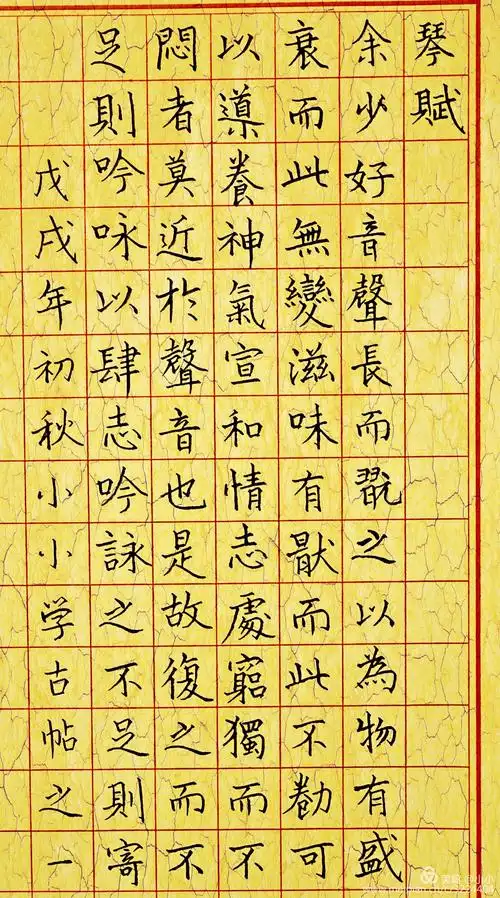 琴賦
余少好音聲長而翫之以為物有盛
衰而此無變滋味有猒而此不勌可
以導養神氣宣和情志處窮獨而不
悶者莫近於聲音也是故復之而不
足則吟咏以肆志吟詠之不足則寄
戊戌年初秋小小学古帖之一
美篇 @小小